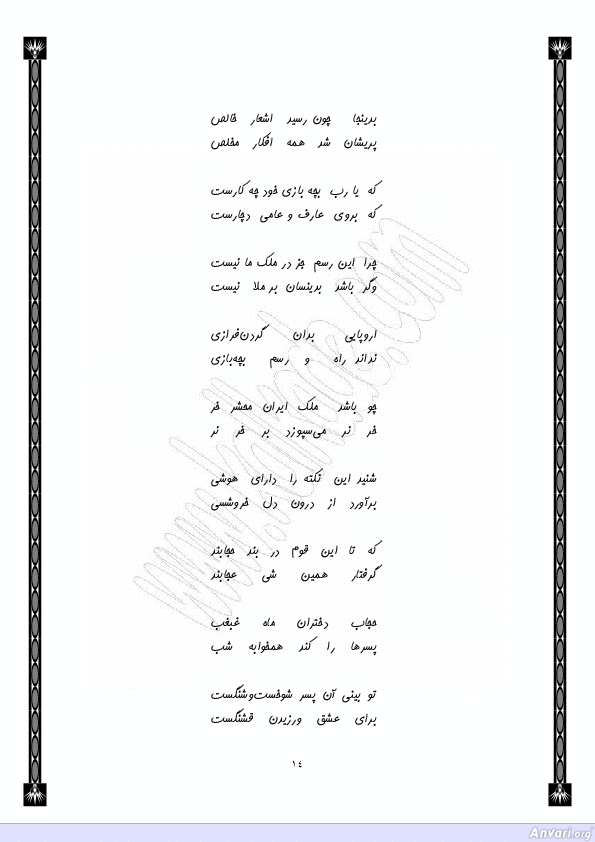 بدینجا چون رسید اشعار خالص
پریشان شد همه افکار مخلص
که یا رب بچه بازی خود چه کارست
که بروی عارف و عامی دچارست
چرا این رسم جز در ملک ما نیست
وگر باشد بدینسان بر ملا نیست
اروپایی بدان گردن‌فرازی
نداند راه و رسم بچه‌بازی
چو باشد ملک ایران محشر خر
خر نر می‌سپوزد بر خر نر
شنید این نکته را دارای هوشی
برآورد از درون دل خروشسی
که تا این قوم در بند حجابند
گرفتار همین شی عجابند
حجاب دختران ماه غبغب
پسرها را کند همخوابه شب
تو بینی آن پسر شوخست‌وشنگست
برای عشق ورزیدن قشنگست
١٤
www.ketabnak.com
Anvari.org